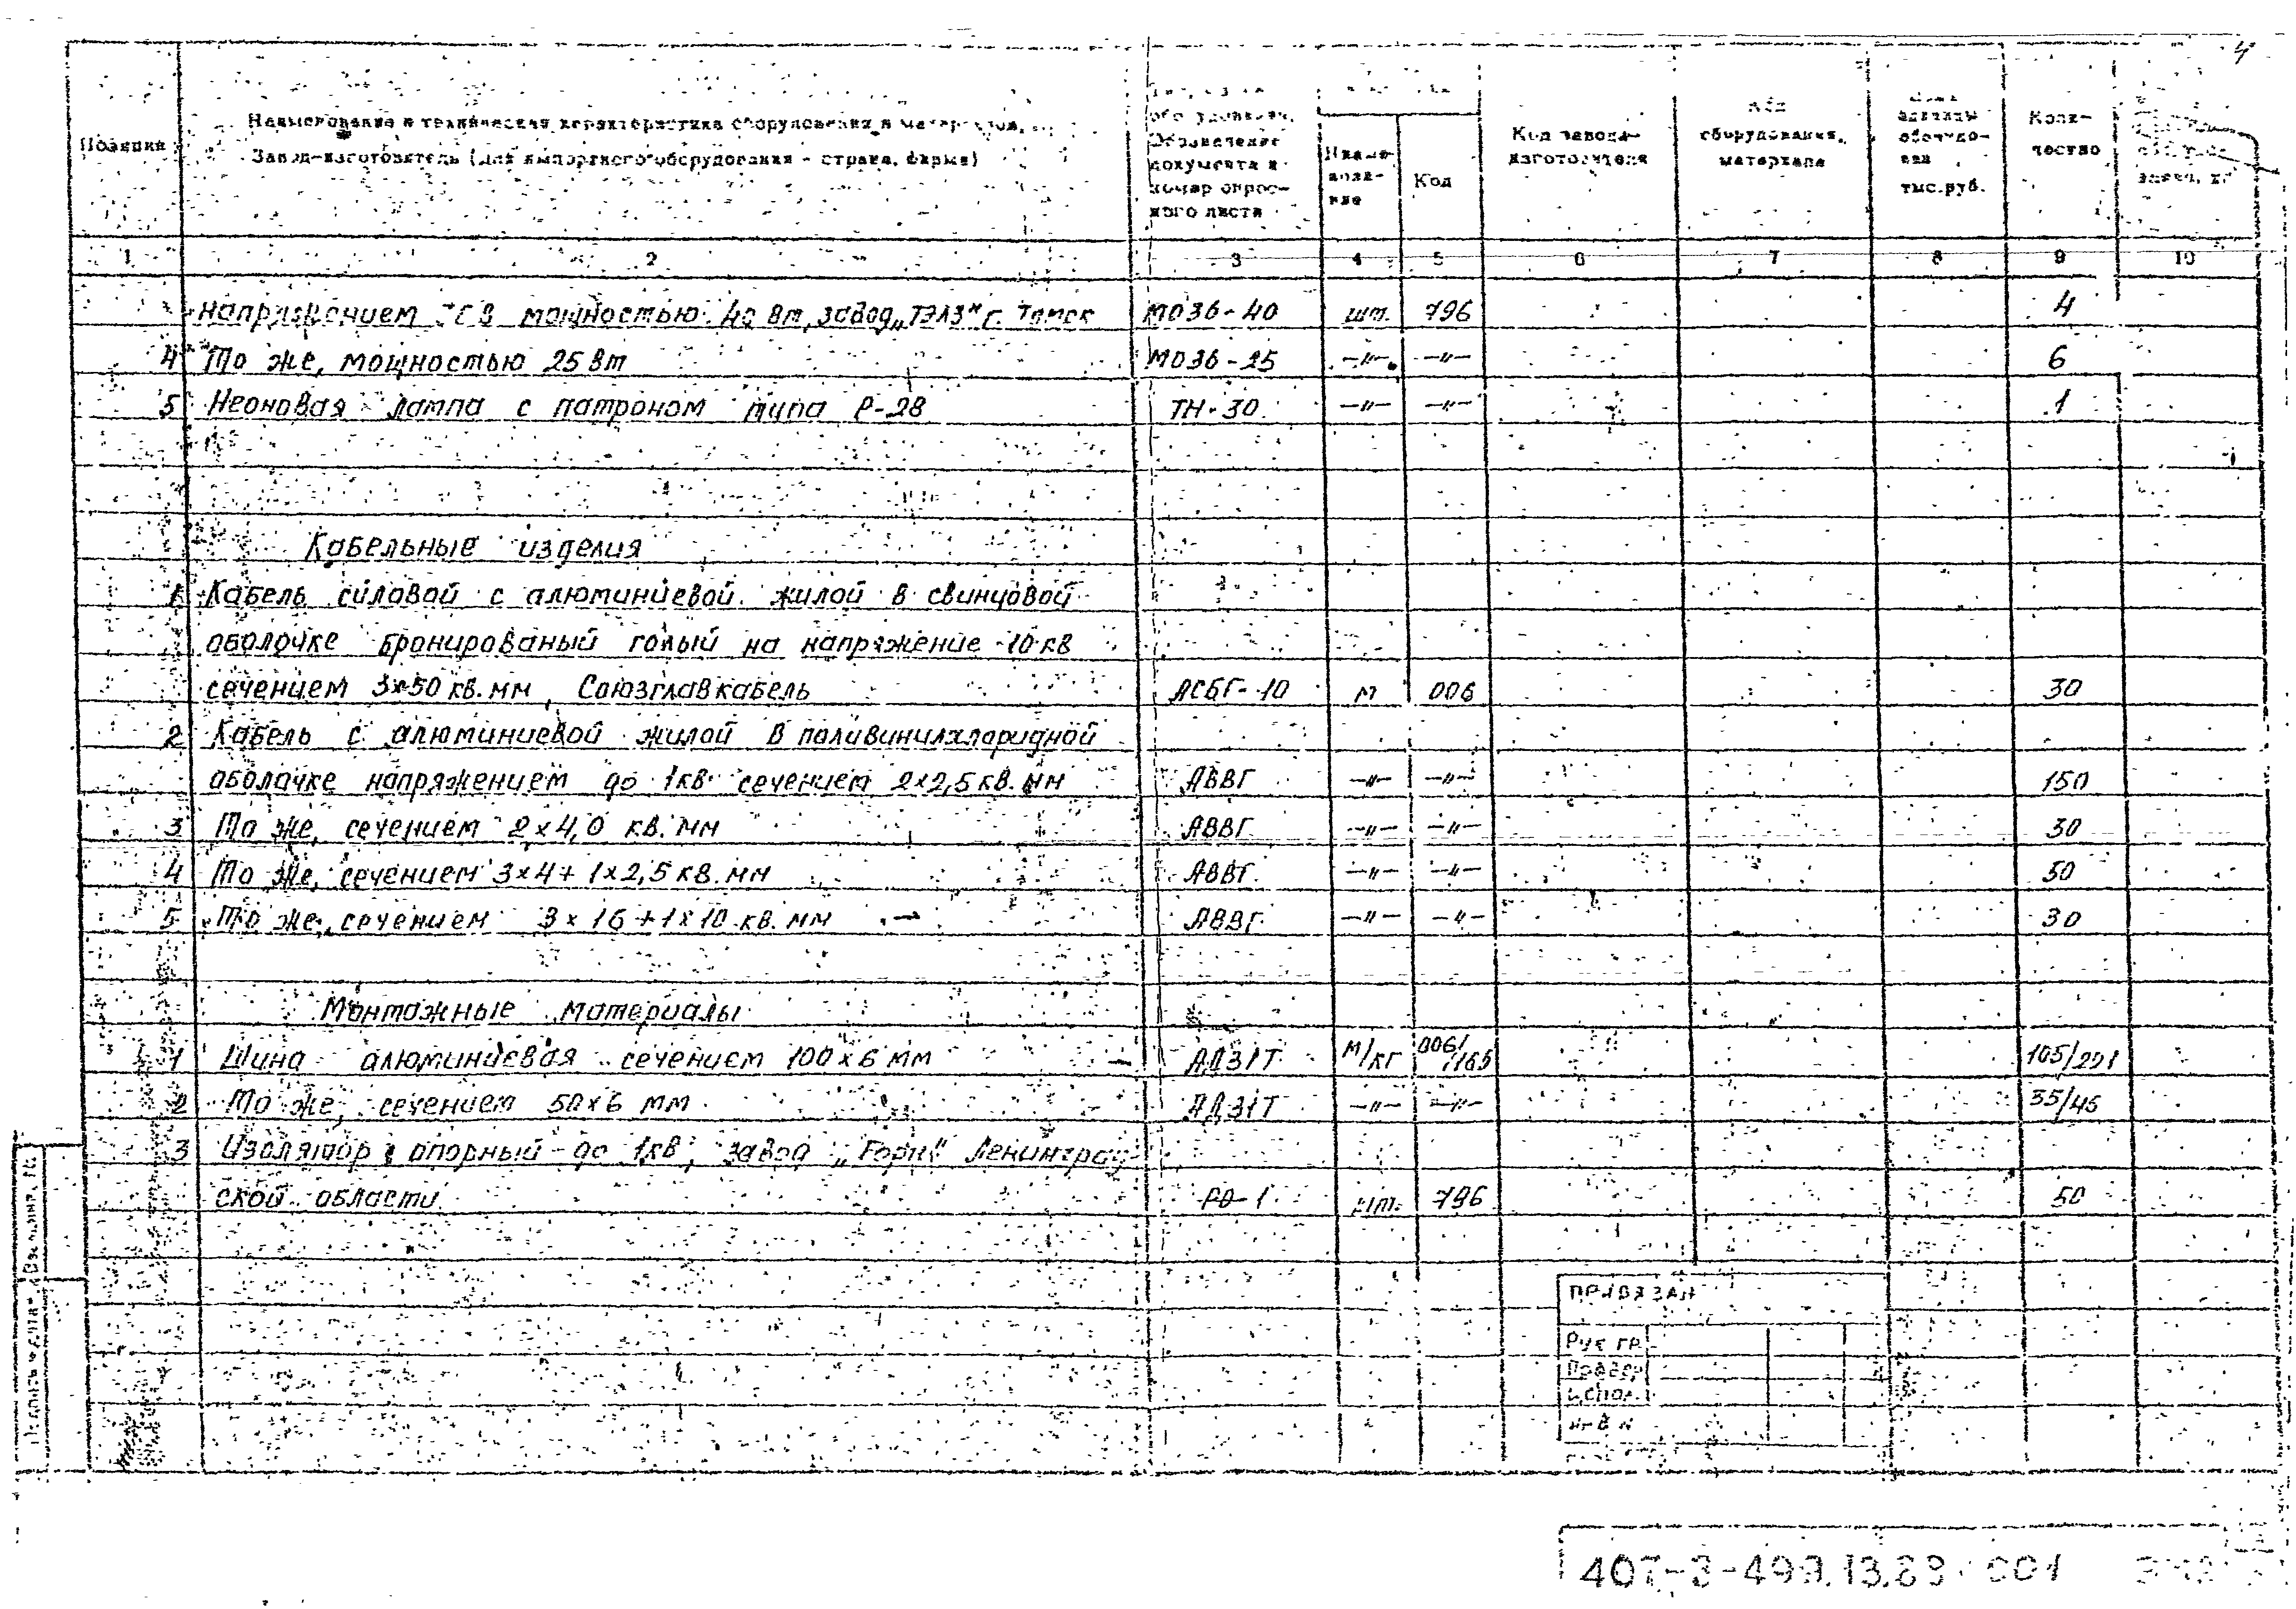 4
Позиция
Наименование и техническая характеристика оборудования и материалов,
Завод-изготовитель (для импортного оборудования - страна, фирма)
оборудования,
Обозначение
документа и
номер опрос-
ного листа
Наиме-
нова-
ние
Код
Код завода-
изготовителя
Код
оборудования,
материала
Цена
единицы
оборудо-
вания
тыс.руб.
Коли-
чество
1 2 3 4 5 6 7 8 9 10
Напряжением В мощностью 40 Вт, завод „ТЭЛЗ" г. Томск МО36-40 шт. 796 4
4 То же, мощностью 25 Вт МО36-25 —"— —"— 6
5 Неоновая лампа с патроном типа Р-28 ТН-30 —"— —"— 1
Кабельные изделия
1 Кабель силовой с алюминиевой жилой в свинцовой
оболочке бронированый голый на напряжение 10 кв
сечением 3×50 кв.мм, Союзглавкабель АСБГ-10 м 006 30
2 Кабель с алюминиевой жилой в поливинилхлоридной
оболочке напряжением до 1кв сечением 2×2,5 кв.мм АВВГ —"— —"— 150
3 То же, сечением 2×4,0 кв.мм АВВГ —"— —"— 30
4 То же, сечением 3×4+1×2,5 кв.мм АВВГ —"— —"— 50
5 То же, сечением 3×16+1×10 кв.мм АВВГ —"— —"— 30
Монтажные материалы
1 Шина алюминиевая сечением 100×6 мм АД31Т м/кг 006/165 105/221
2 То же, сечением 50×6 мм АД31Т —"— —"— 35/45
3 Изолятор опорный до 1кв, завод Ленинград-
ской области РО-1 шт. 796 50
ПРИВЯЗАН
Рук гр.
Провер
Испол.
Инв N
Взам.инв. N
Подпись и дата
407-3-499.13.88 001